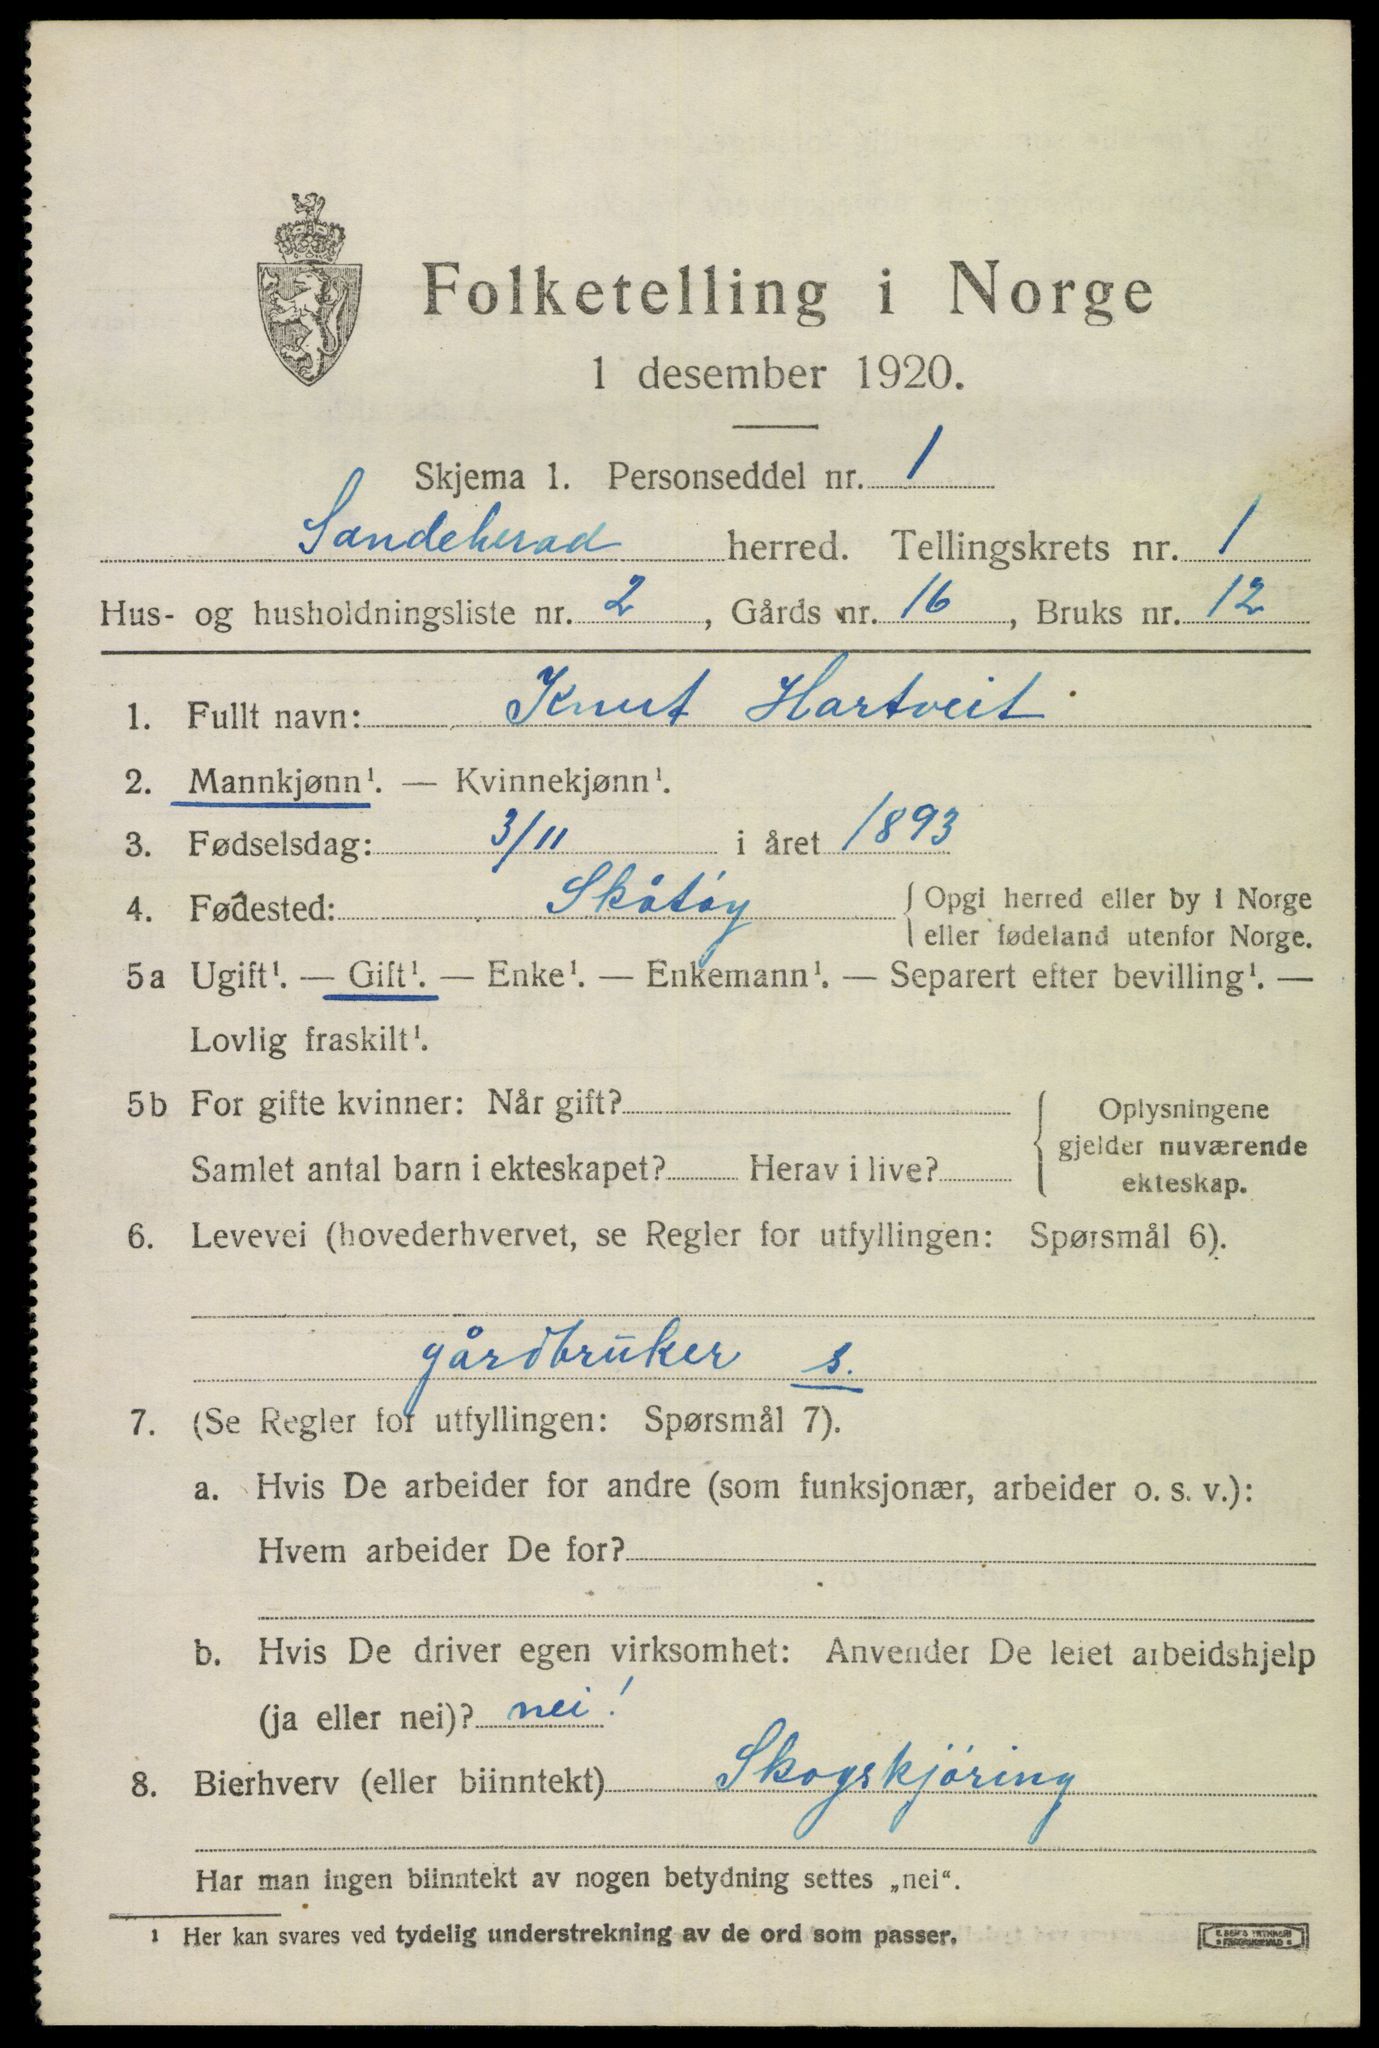 Folketelling i Norge
1 desember 1920.
Skjema 1. Personseddel nr. 1
Sandeherad herred. Tellingskrets nr. 1
Hus- og husholdningsliste nr. 2, Gårds nr. 16, Bruks nr. 12
1. Fullt navn: Knut Hartveit
2. Mannkjønn¹. — Kvinnekjønn¹.
3. Fødselsdag: 3/11 i året 1893
4. Fødested: Skåtøy { Opgi herred eller by i Norge
eller fødeland utenfor Norge.
5a Ugift¹. — Gift¹. — Enke¹. — Enkemann¹. — Separert efter bevilling¹. —
Lovlig fraskilt¹.
5b For gifte kvinner: Når gift?
Samlet antal barn i ekteskapet? Herav i live?
Oplysningene
gjelder nuværende
ekteskap.
6. Levevei (hovederhvervet, se Regler for utfyllingen: Spørsmål 6).
gårdbruker s.
7. (Se Regler for utfyllingen: Spørsmål 7).
a. Hvis De arbeider for andre (som funksjonær, arbeider o. s. v.):
Hvem arbeider De for?
b. Hvis De driver egen virksomhet: Anvender De leiet arbeidshjelp
(ja eller nei)? nei!
8. Bierhverv (eller biinntekt) Skogskjöring
Har man ingen biinntekt av nogen betydning settes „nei“.
¹ Her kan svares ved tydelig understrekning av de ord som passer.